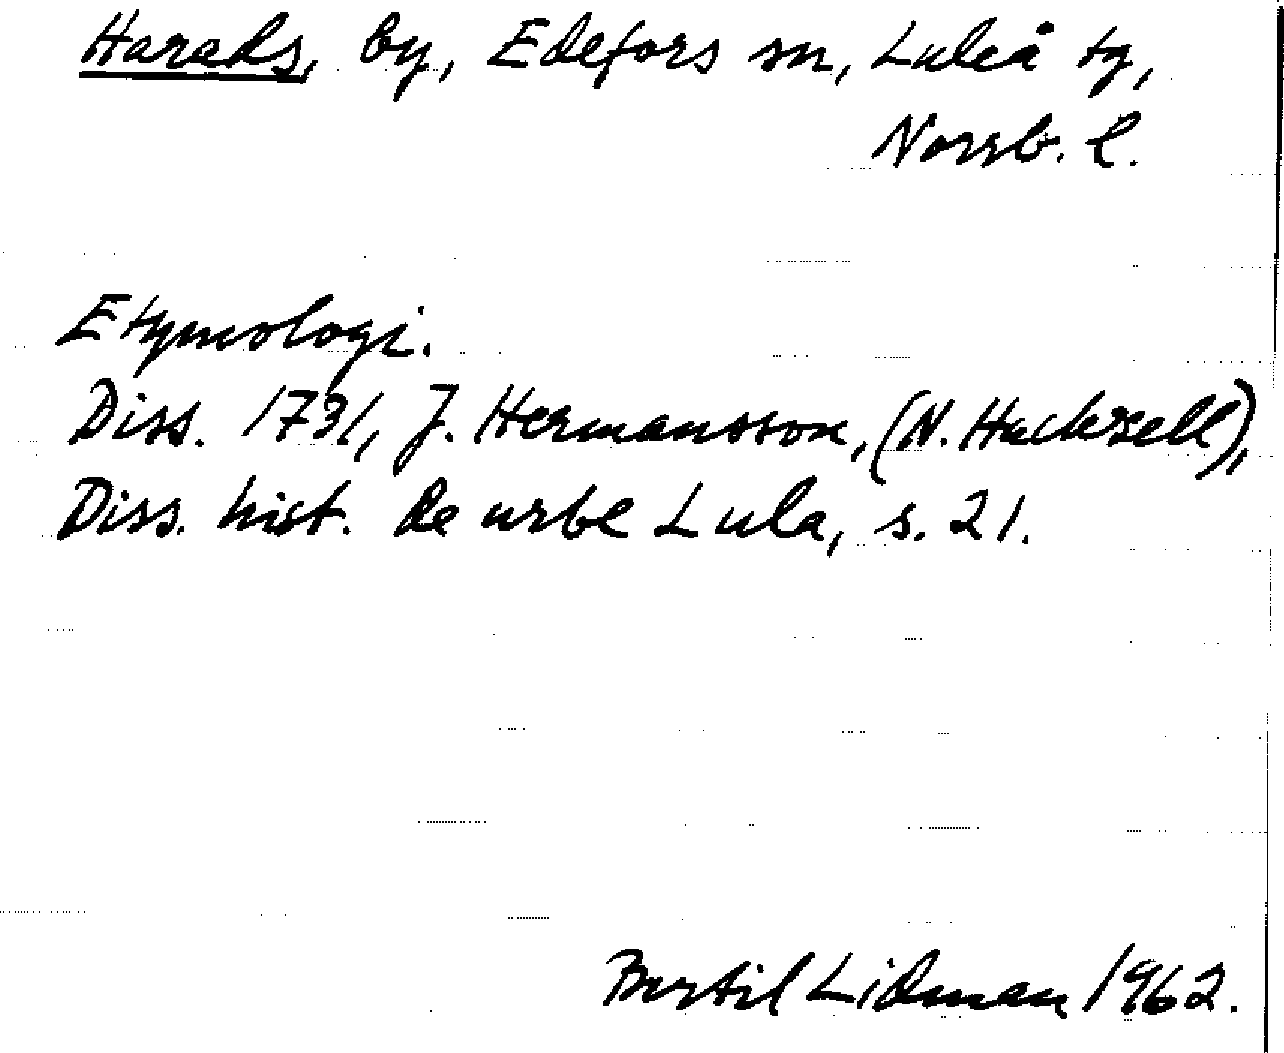 Harads, by, Edefors sn, Luleå tg,
Norrb. l.
Etymologi.
Diss. 1731, J. Hermansson, (N. Hackzell),
Diss. hist. de urbe Lula, s. 21.
Bertil Lidman 1962.